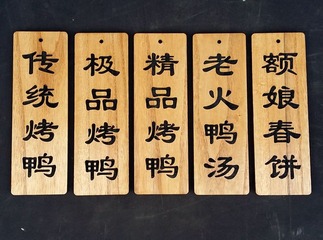 传统烤鸭
极品烤鸭
精品烤鸭
老火鸭汤
额娘春饼